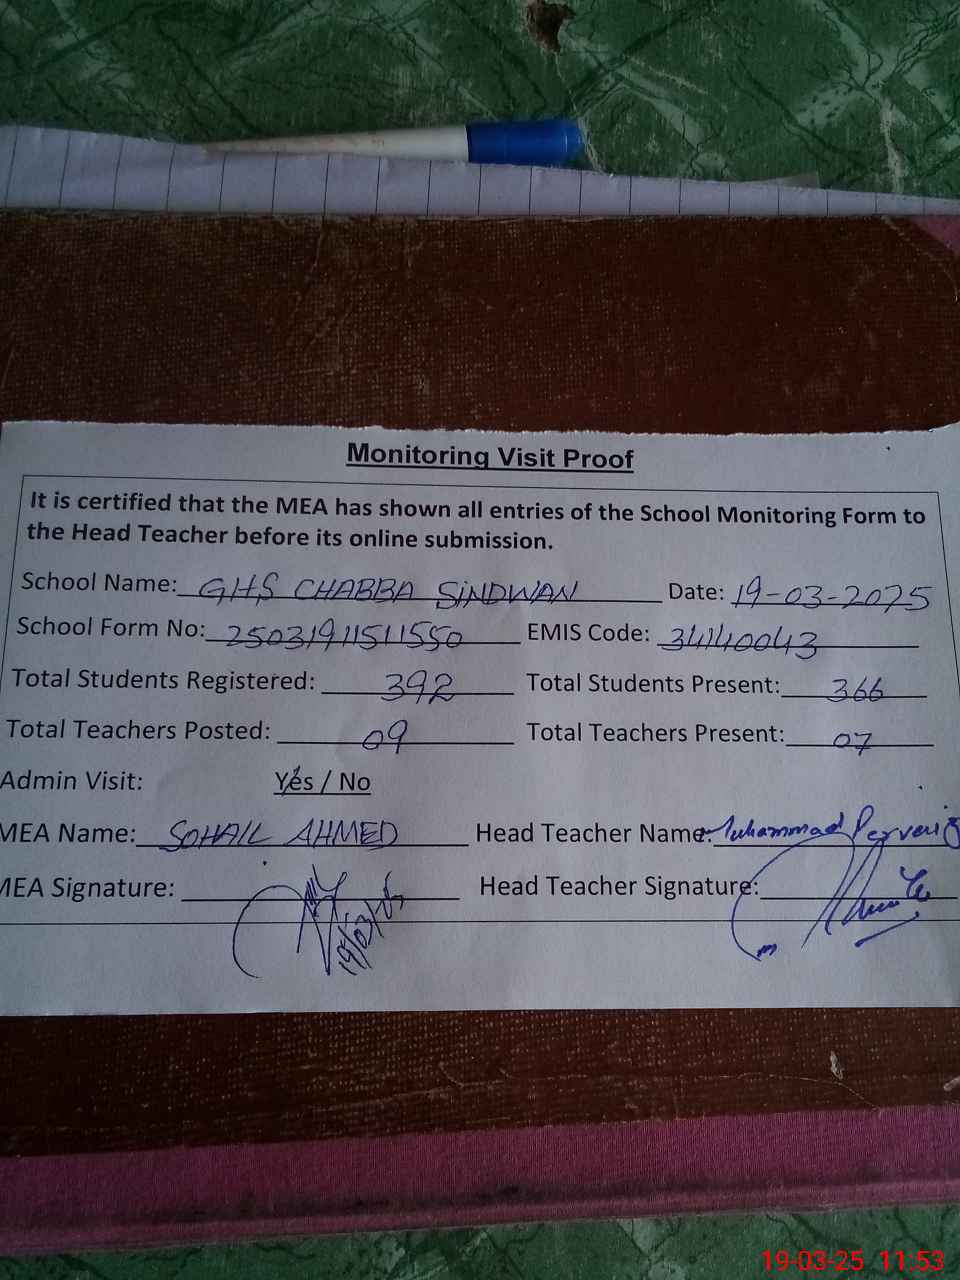 Monitoring Visit Proof
It is certified that the MEA has shown all entries of the School Monitoring Form to
the Head Teacher before its online submission.
School Name: GHS CHABBA SINDWAN Date: 19-03-2025
School Form No: 25031911511550 EMIS Code: 34140043
Total Students Registered: 392 Total Students Present: 366
Total Teachers Posted: 09 Total Teachers Present: 07
Admin Visit: Yes / No
MEA Name: SOHAIL AHMED Head Teacher Name: Muhammad Perveiz
MEA Signature: Head Teacher Signature:
19/03/25
19-03-25 11:53